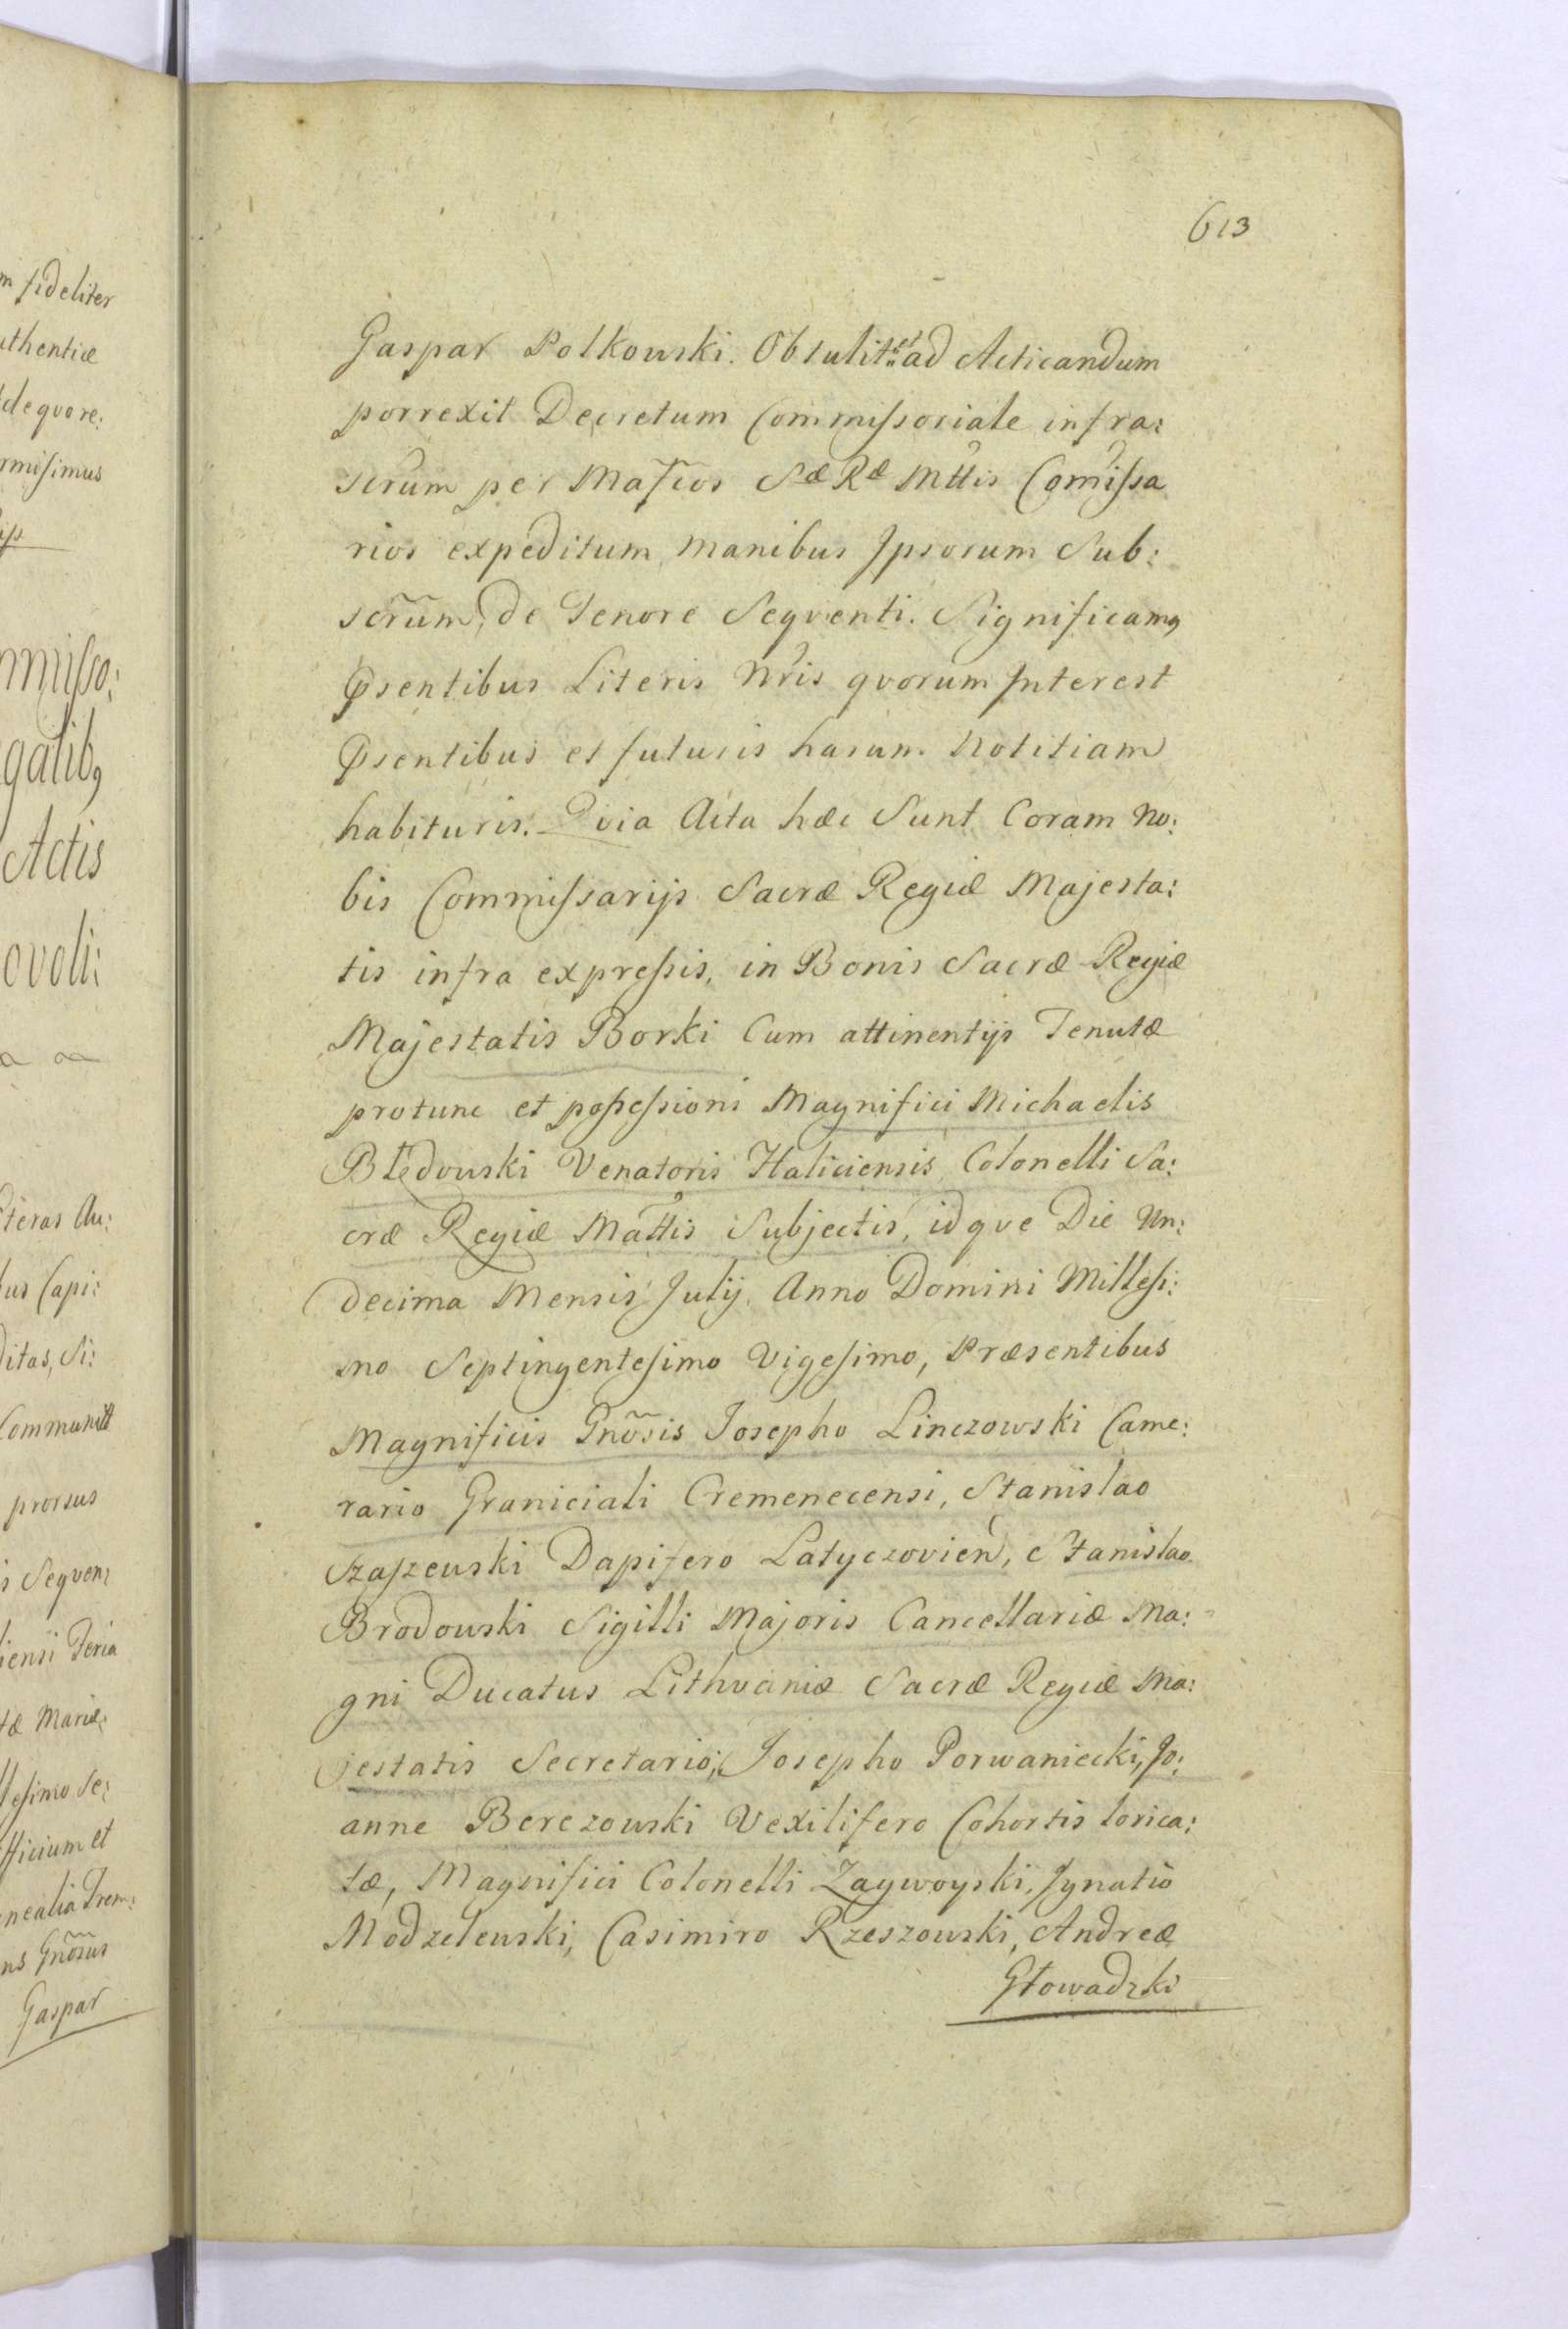 m fideliter
uthentiæ
de quo re:
rmiſimus
mmiſso:
galib9
Actis
ovoli:
teras Au:
us Capi:
ditas, Si:
Communitt
prorsus
s Seqven:
iensi Feria
tæ Mariæ:
lesimo Se:
fficium et
nealia Trem:
ns Gnõsus
Gaspar
613
Gaspar Polkowski. Obtulit et ad Acticandum
porrexit Decretum Commiſsoriale infra:
scrum per Mafcos Sæ Ræ Mttis Comiſsa
rios expeditum, manibus Ipsorum Sub:
scr̃um, de Tenore Seqventi. Significam9
Psentibus Literis Nris qvorum Interest
Psentibus et futuris harum Notitiam
habituris. Qvia Acta hæc Sunt Coram No:
bis Commiſsarijs Sacræ Regiæ Majesta:
tis infra expreſsis, in Bonis Sacræ Regiæ
Majestatis Borki Cum attinentijs Tenutæ
protunc et poſseſsioni Magnifici Michaelis
Błędowski Venatoris Haliciensis, Colonelli Sa:
cræ Regiæ Mattis Subjectis, idqve Die Un:
decima Mensis Julij. Anno Domini Milleſi:
mo Septingenteſimo Vigeſimo, Præsentibus
Magnificis Gnõsis Josepho Linczowski Came:
rario Graniciali Cremenecensi, Stanislao
Szaſzewski Dapifero Latyczovien, Stanislao
Brodowski Sigilli Majoris Cancellariæ Ma:
gni Ducatus Lithvaniæ Sacræ Regiæ Ma:
jestatis Secretario, Josepho Porwaniecki, Jo:
anne Berezowski Vexilifero Cohortis lorica:
tæ, Magnifici Colonelli Zagwoyski, Ignatio
Modzelewski, Casimiro Rzeszowski, Andreæ
Głowadzki